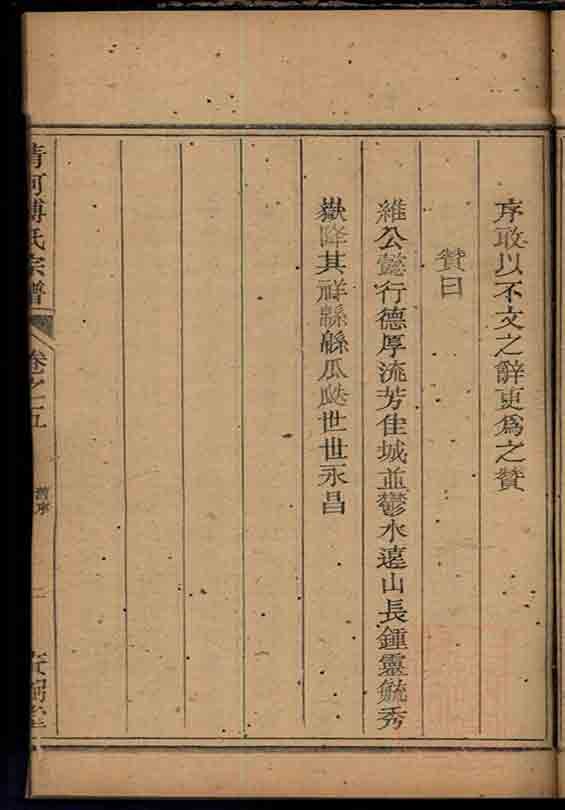 序敢以不文之辭更爲之贊
贊曰
維公懿行德厚流芳佳城並鬱水遶山長鍾靈毓秀
嶽降其祥緜緜瓜瓞世世永昌
清河傅氏宗譜
卷之五
舊序
一